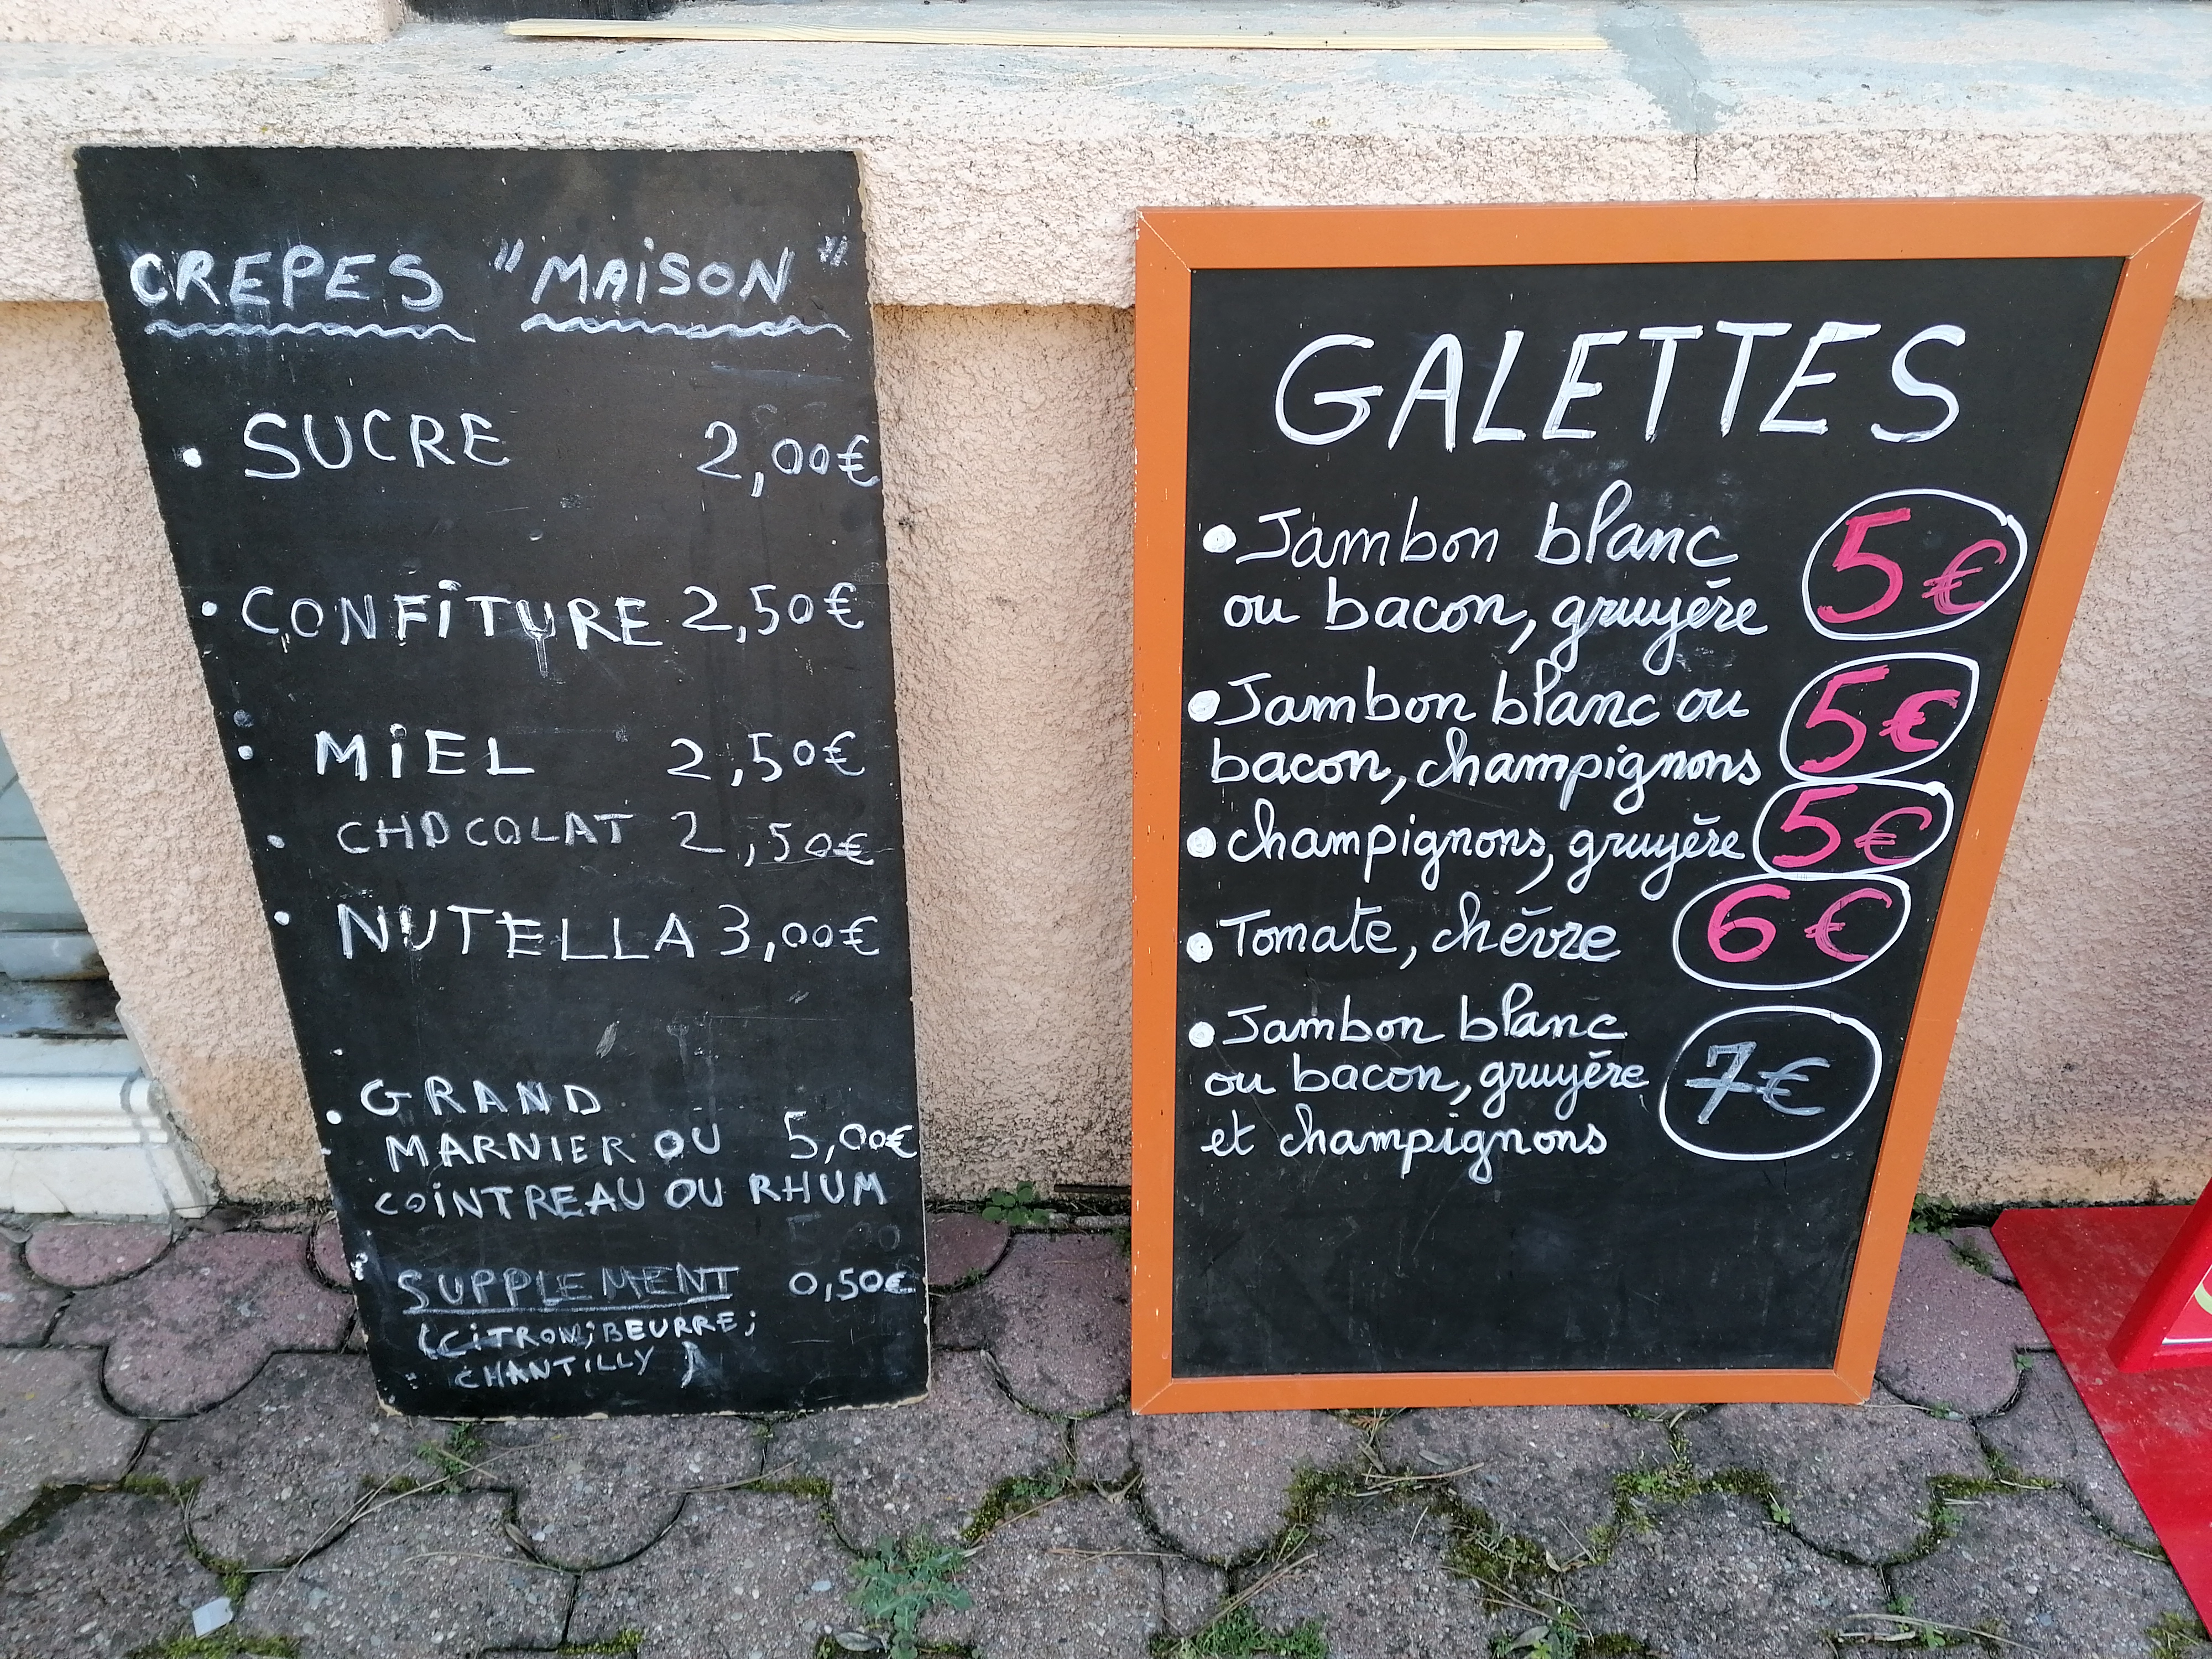 CREPES "MAiSON"
• SUCRE 2,00€
• CONFiTURE 2,50€
• MiEL 2,50€
• CHOCOLAT 2,50€
• NUTELLA 3,00€
• GRAND
MARNIER OU 5,00€
COINTREAU OU RHUM
SUPPLEMENT 0,50€
(CiTRON; BEURRE;
CHANTiLLY)
GALETTES
• Jambon blanc
ou bacon, gruyère 5€
• Jambon blanc ou
bacon, champignons 5€
• champignons, gruyère 5€
• Tomate, chèvre 6€
• Jambon blanc
ou bacon, gruyère 7€
et champignons